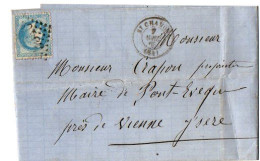 ST CHAM
Monsieur
Monsieur Crapon propriétre
Maire de Pont-Evêque
près de Vienne Isère